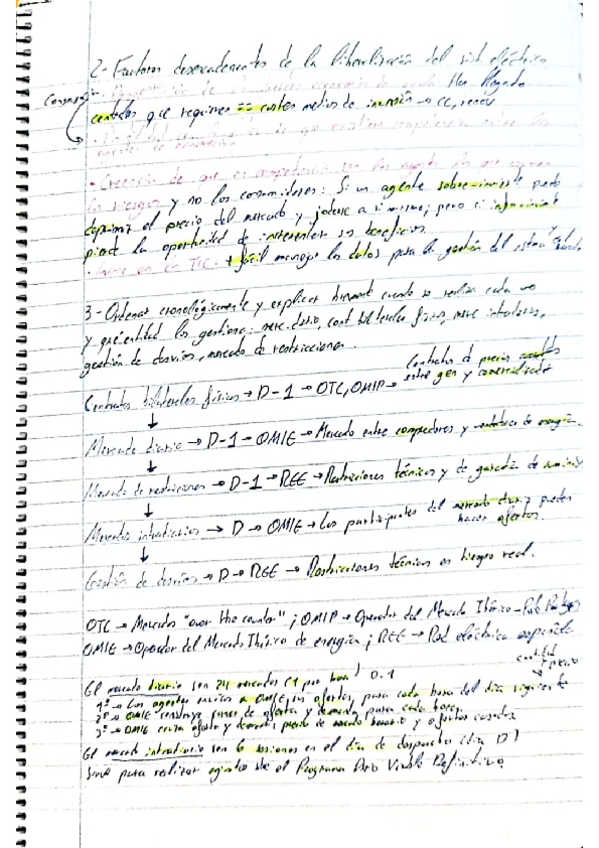 2- Factores desencadenantes de la liberalización del sist. eléctrico
Han llegado
centrales que requieren == costes medios de inversión → CC, renov
• Creencia de que en competencia son los agentes los que asumen
los riesgos y no los consumidores: Si un agente sobre-invierte puede
deprimir el precio del mercado y joderse a si mismo; pero si infra-invierte
pierde la oportunidad de incrementar sus beneficios.
TIC. + fácil manejar los datos para la gestión del sistema
3- Ordenar cronológicamente y explicar brevemente cuando se realiza cada uno
y qué entidad los gestiona: merc. diario, cont. bilaterales físicos, merc. intradiarios,
gestión de desvíos, mercado de restricciones.
Contratos bilaterales físicos → D-1 → OTC, OMIP → Contratos de precios
entre gen y comercializador
↓
Mercado diario → D-1 → OMIE → Mercado entre compradores y vendedores de energía.
↓
Mercado de restricciones → D-1 → REE → Restricciones técnicas y de garantía de suminis
↓
Mercados intradiarios → D → OMIE → Los participantes del mercado diario pueden
hacer ofertas.
↓
Gestión de desvíos → D → REE → Restricciones técnicas en tiempo real.
OTC → Mercados "over the counter"; OMIP → Operador del Mercado Ibérico - Polo Portugués
OMIE → Operador del Mercado Ibérico de energía; REE → Red eléctrica española
El mercado diario son 24 mercados (1 por hora) D-1
cantidad
+ precio
1º → Los agentes envían a OMIE sus ofertas, para cada hora del día siguiente
2º → OMIE construye curvas de oferta y demanda para cada hora.
3º → OMIE cruza oferta y demanda; precio de mercado horario y ofertas casadas
El mercado intradiario son 6 sesiones en el día de despacho (día D)
Sirve para realizar ajustes sobre el Programa Diario Viable Definitivo